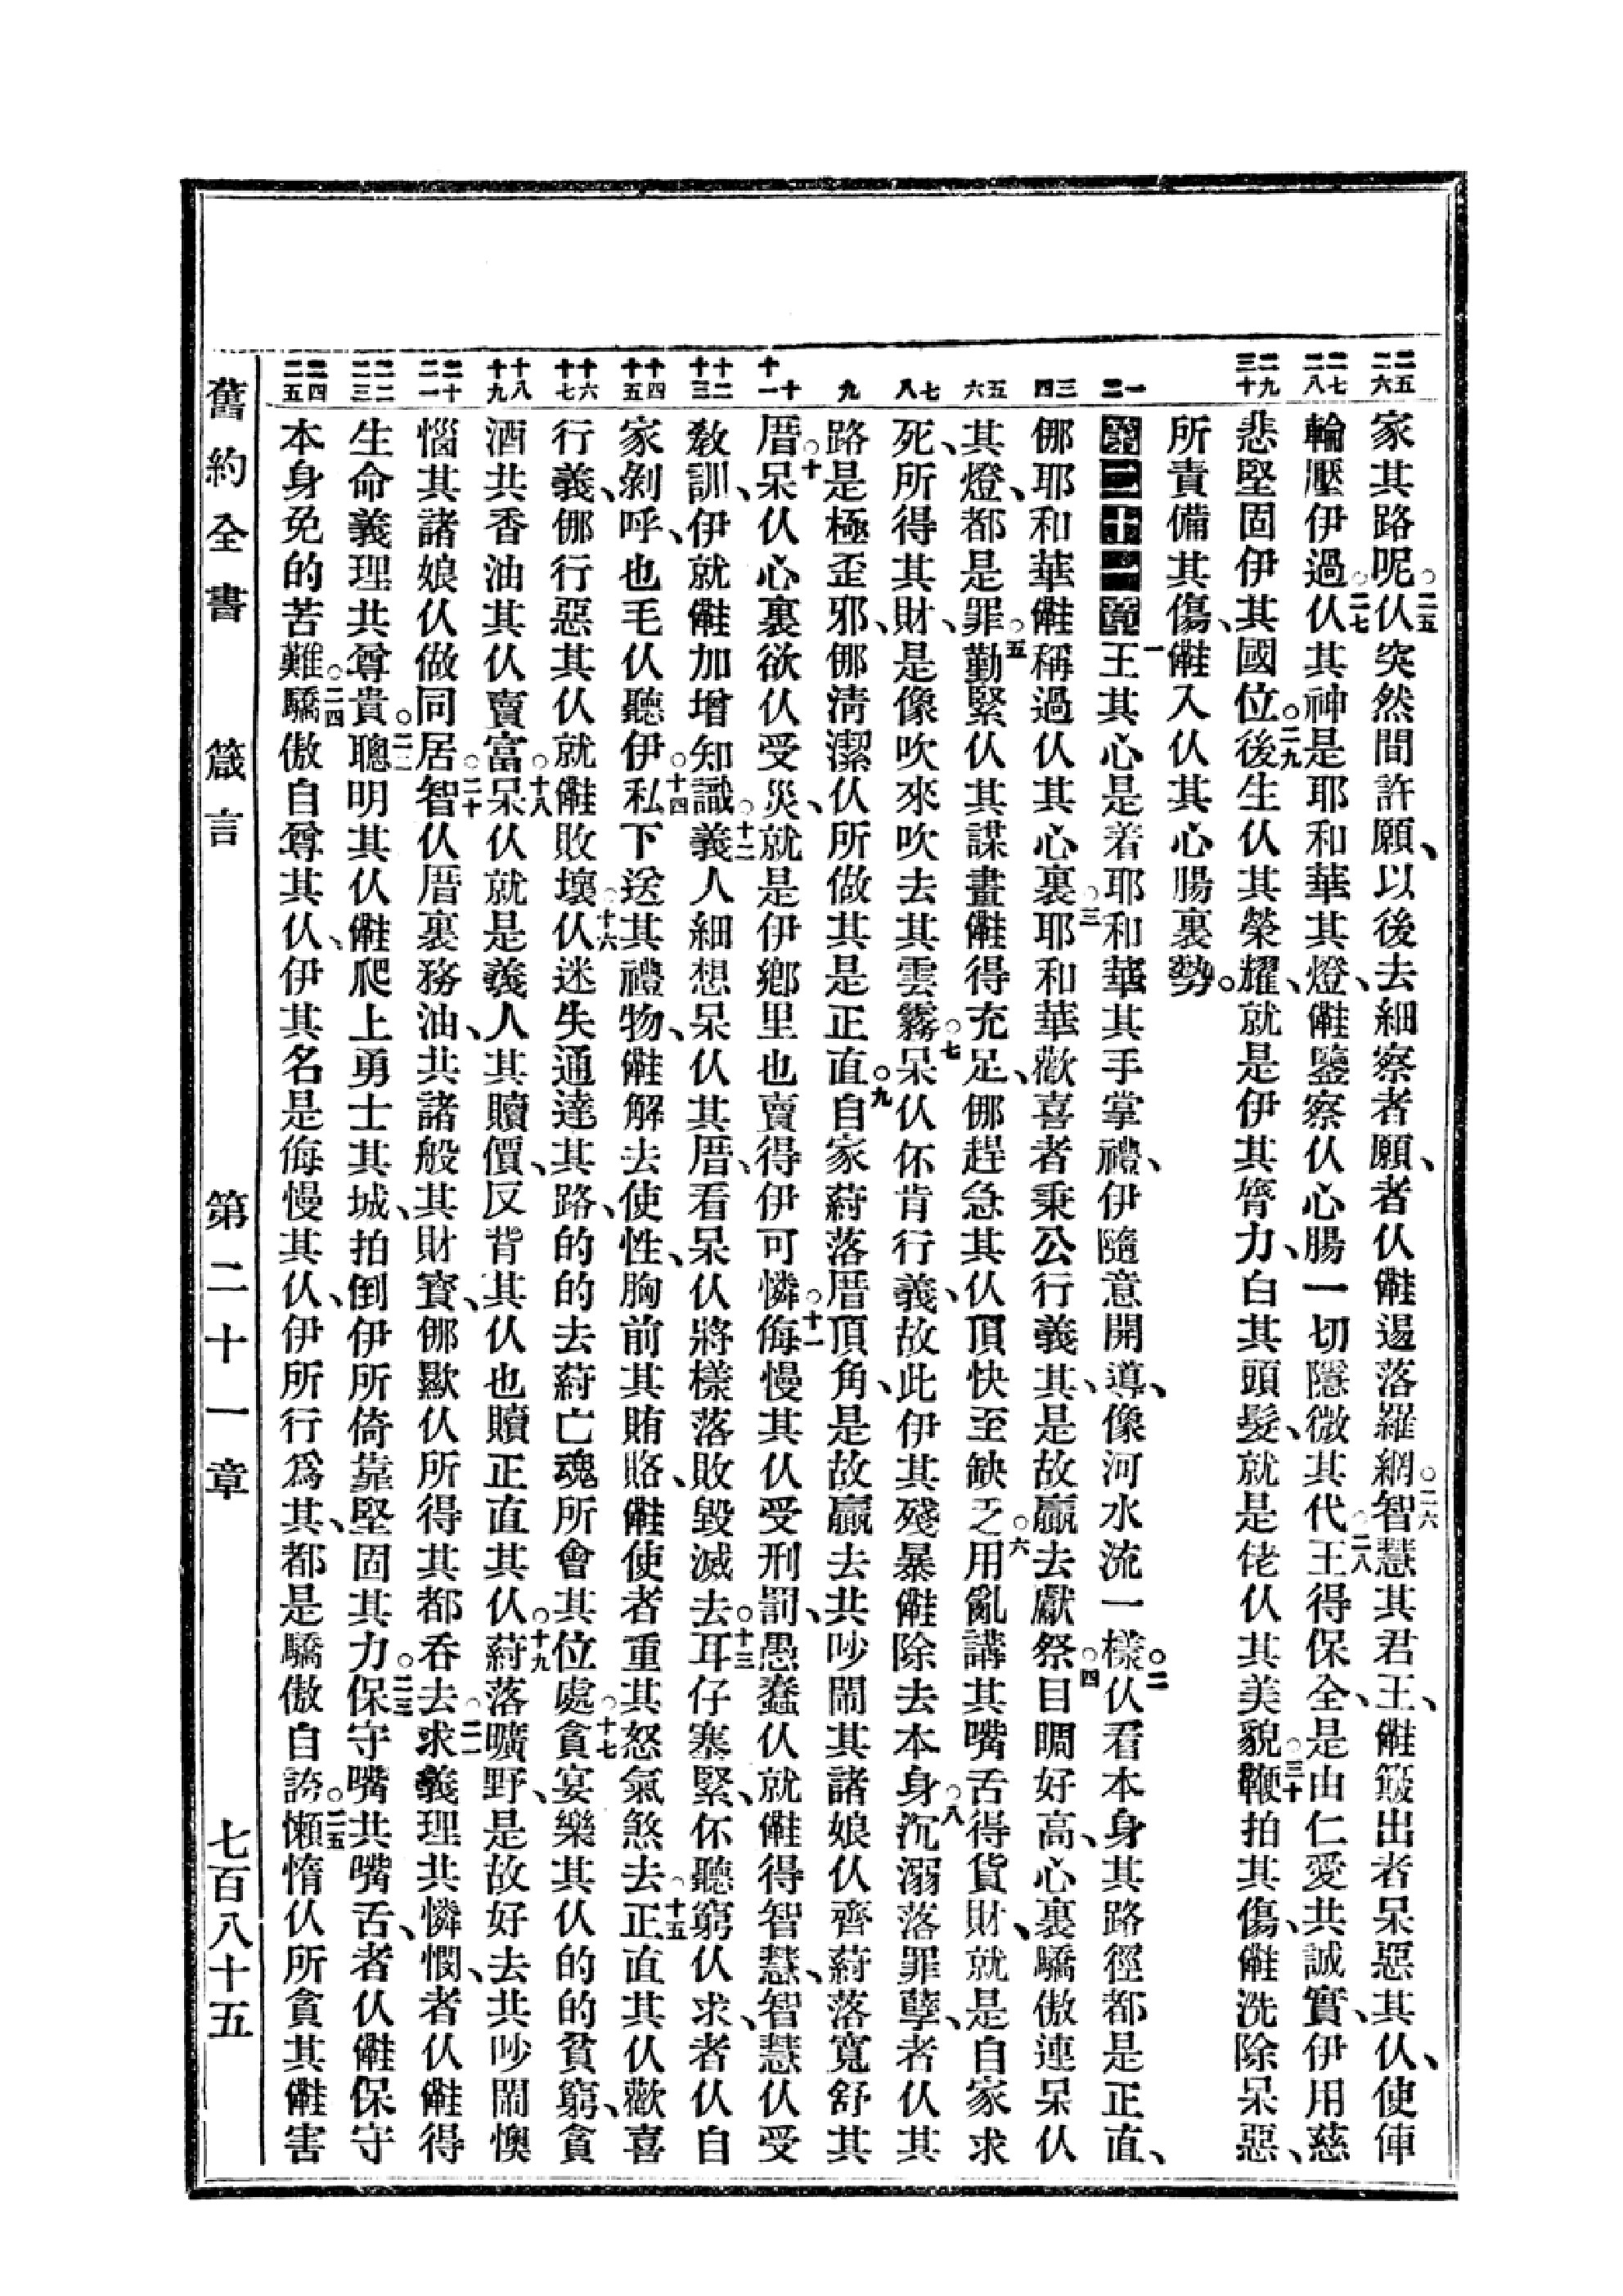 家其路呢。二五仈突然間許願、以後去細察者願、者仈𠆧逿落羅網。二六智慧其君王、𠆧簸出者呆惡其仈、使俥
輪壓伊過。二七仈其神是耶和華其燈、𠆧鑒察仈心腸一切隱微其。二八代王得保全、是由仁愛共誠實、伊用慈
悲堅固伊其國位。二九後生仈其榮耀、就是伊其膂力、白其頭髮、就是佬仈其美貌。三十鞭拍其傷、𠆧洗除呆惡、
所責備其傷、𠆧入仈其心腸裏勢。
第二十一章 一王其心是着耶和華其手掌禮、伊隨意開導、像河水流一樣。二仈看本身其路徑都是正直、
㑚耶和華𠆧稱過仈其心裏。三耶和華歡喜者秉公行義其、是故贏去獻祭。四目睭好高、心裏驕傲連呆仈
其燈、都是罪。五勤緊仈其謀畫𠆧得充足、㑚趕急其仈頂快至缺乏。六用亂講其嘴舌得貨財、就是自家求
死、所得其財、是像吹來吹去其雲霧。七呆仈伓肯行義、故此伊其殘暴𠆧除去本身。八沉溺落罪孽、者仈其
路是極歪邪、㑚淸潔仈所做其是正直。九自家蒔落厝頂角、是故贏去共吵鬧其諸娘仈齊蒔落寬舒其
厝。十呆仈心裏欲仈受災、就是伊鄉里也賣得伊可憐。十一侮慢其仈受刑罰、愚蠢仈就𠆧得智慧、智慧仈受
敎訓、伊就𠆧加增知識。十二義人細想呆仈其厝、看呆仈將樣落敗毀滅去。十三耳仔塞緊、伓聽窮仈求、者仈自
家剝呼、也毛仈聽伊。十四私下送其禮物、𠆧解去使性、胸前其賄賂、𠆧使者重其怒氣煞去。十五正直其仈歡喜
行義、㑚行惡其仈就𠆧敗壞。十六仈迷失通達其路、的的去蒔亡魂所會其位處。十七貪宴樂其仈的的貧窮、貪
酒共香油其仈賣富。十八呆仈就是義人其贖價、反背其仈也贖正直其仈。十九蒔落曠野、是故好去共吵鬧懊
惱其諸娘仈做同居。二十智仈厝裏務油、共諸般其財寶、㑚歞仈所得其都吞去。二一求義理共憐憫、者仈𠆧得
生命義理共尊貴。二二聰明其仈𠆧爬上勇士其城、拍倒伊所倚靠堅固其力。二三保守嘴共嘴舌、者仈𠆧保守
本身免的苦難。二四驕傲自尊其仈、伊其名是侮慢其仈、伊所行爲其、都是驕傲自誇。二五懶惰仈所貪其𠆧害
舊約全書 箴言 第二十一章 七百八十五